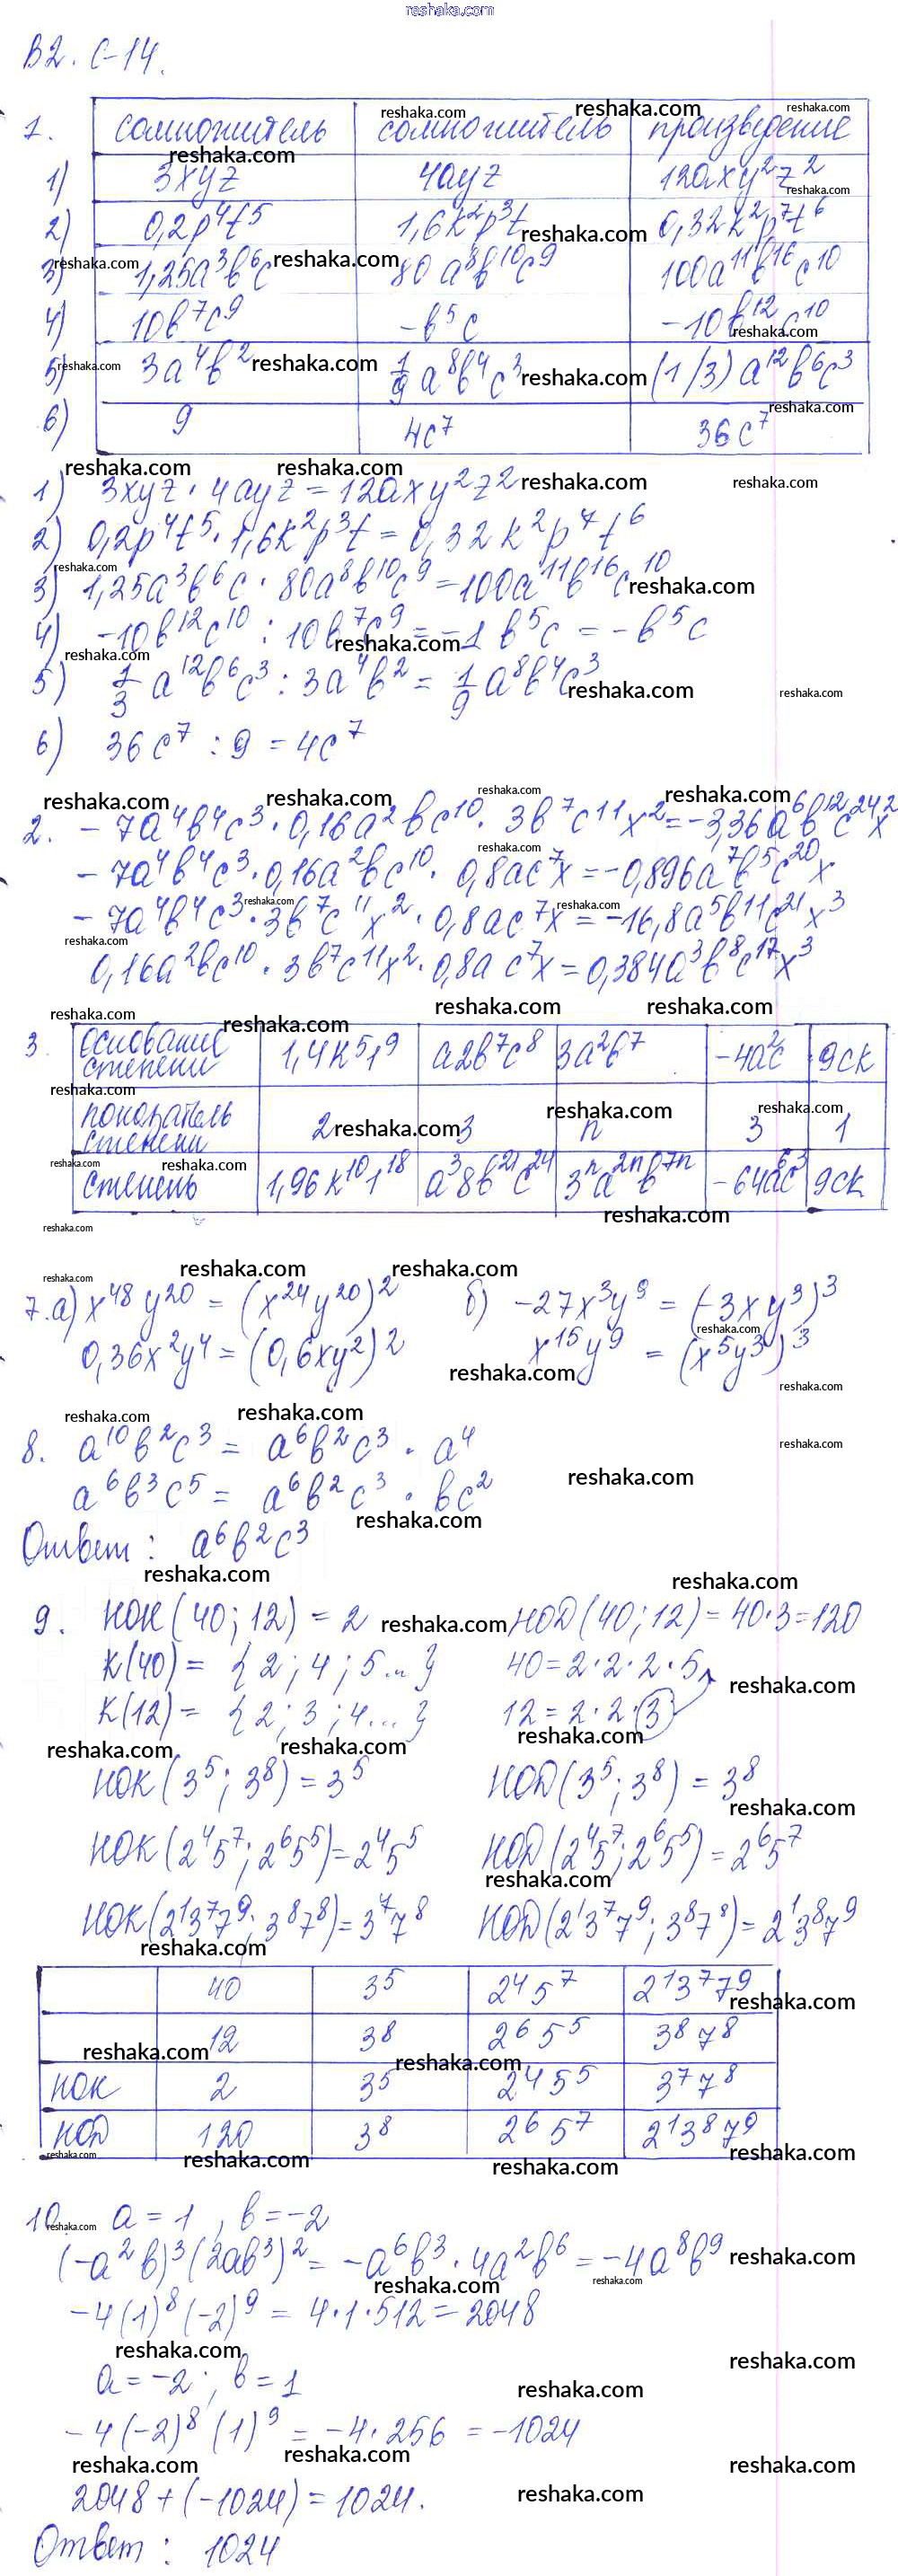 reshaka.com
В2. С-14.
1.
сомножитель сомножитель произведение
1) 3xyz 4ayz 12axy²z²
2) 0,2p⁴t⁵ 1,6k²p³t 0,32k²p⁷t⁶
3) 1,25a³b⁶c 80a⁸b¹⁰c⁹ 100a¹¹b¹⁶c¹⁰
4) 10b⁷c⁹ -b⁵c -10b¹²c¹⁰
5) 3a⁴b² 1/9 a⁸b⁴c³ (1/3) a¹²b⁶c³
6) 9 4c⁷ 36c⁷
1) 3xyz · 4ayz = 12axy²z²
2) 0,2p⁴t⁵ · 1,6k²p³t = 0,32k²p⁷t⁶
3) 1,25a³b⁶c · 80a⁸b¹⁰c⁹ = 100a¹¹b¹⁶c¹⁰
4) -10b¹²c¹⁰ : 10b⁷c⁹ = -1 b⁵c = -b⁵c
5) 1/3 a¹²b⁶c³ : 3a⁴b² = 1/9 a⁸b⁴c³
6) 36c⁷ : 9 = 4c⁷
2. -7a⁴b⁴c³ · 0,16a²bc¹⁰ · 3b⁷c¹¹x² = -3,36a⁶b¹²c²⁴x²
-7a⁴b⁴c³ · 0,16a²bc¹⁰ · 0,8ac⁷x = -0,896a⁷b⁵c²⁰x
-7a⁴b⁴c³ · 3b⁷c¹¹x² · 0,8ac⁷x = -16,8a⁵b¹¹c²¹x³
0,16a²bc¹⁰ · 3b⁷c¹¹x² · 0,8ac⁷x = 0,384a³b⁸c¹⁷x³
3.
основание степени 1,4k⁵l⁹ a2b⁷c⁸ 3a²b⁷ -4a²c 9ck
показатель степени 2 3 n 3 1
степень 1,96k¹⁰l¹⁸ a³8b²¹c²⁴ 3ⁿa²ⁿb⁷ⁿ -64a⁶c³ 9ck
7. а) x⁴⁸y²⁰ = (x²⁴y²⁰)² б) -27x³y⁹ = (-3xy³)³
0,36x²y⁴ = (0,6xy²)² x¹⁵y⁹ = (x⁵y³)³
8. a¹⁰b²c³ = a⁶b²c³ · a⁴
a⁶b³c⁵ = a⁶b²c³ · bc²
Ответ: a⁶b²c³
9. НОК(40;12) = 2 НОД(40;12) = 40·3 = 120
К(40) = {2; 4; 5...} 40 = 2·2·2·5
К(12) = {2; 3; 4...} 12 = 2·2·3
НОК(3⁵; 3⁸) = 3⁵ НОД(3⁵; 3⁸) = 3⁸
НОК(2⁴5⁷; 2⁶5⁵) = 2⁴5⁵ НОД(2⁴5⁷; 2⁶5⁵) = 2⁶5⁷
НОК(2¹3⁷7⁹; 3⁸7⁸) = 3⁷7⁸ НОД(2¹3⁷7⁹; 3⁸7⁸) = 2¹3⁸7⁹
40 3⁵ 2⁴5⁷ 2¹3⁷7⁹
12 3⁸ 2⁶5⁵ 3⁸7⁸
НОК 2 3⁵ 2⁴5⁵ 3⁷7⁸
НОД 120 3⁸ 2⁶5⁷ 2¹3⁸7⁹
10. a = 1, b = -2
(-a²b)³(2ab³)² = -a⁶b³ · 4a²b⁶ = -4a⁸b⁹
-4(1)⁸(-2)⁹ = 4·1·512 = 2048
a = -2; b = 1
-4(-2)⁸(1)⁹ = -4·256 = -1024
2048 + (-1024) = 1024.
Ответ: 1024